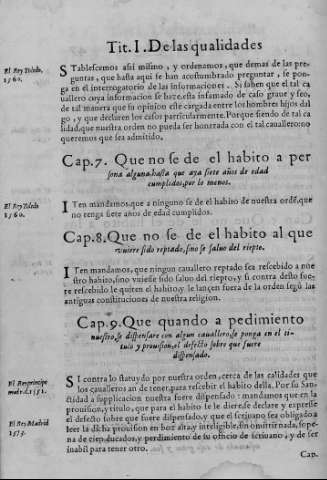 Tit. I. De las qualidades
El Rey Toledo.
1560.
STablescemos assi mismo, y ordenamos, que demas de las pre-
guntas, que hasta aqui se han acostumbrado preguntar, se pon-
ga en el interrogatorio de las informaciones. Si saben que el tal ca
uallero cuya informacion se haze, esta infamado de caso graue y feo,
de tal manera que su opinion este cargada entre los hombres hijos dal
go, y que declaren los casos particularmente. Porque siendo de tal ca
lidad, que nuestra orden no pueda ser honrrada con el tal cauallero: no
queremos que sea admitido.
Cap. 7. Que no se de el habito a per
sona alguna, hasta que aya siete años de edad
cumplidos, por lo menos.
El Rey Toledo
1560.
ITen mandamos, que a ninguno se de el habito de nuestra ordē, que
no tenga siete años de edad cumplidos.
Cap. 8. Que no se de el habito al que
vuiere sido reptado, sino se saluo del riepto.
ITen mandamos, que ningun cauallero reptado sea rescebido a nue
stro habito, sino vuiesse sido saluo del riepto, y si contra desto fue-
re rescebido le quiten el habito, y le lançen fuera de la orden segū las
antiguas constituciones de nuestra religion.
Cap. 9. Que quando a pedimiento
nuestro, se dispensare con algun cauallero, se ponga en el ti-
tulo y prouision, el defecto sobre que fuere
dispensado.
El Emprincipe
madrid. 1551.
El Rey Madrid
1573.
SI contra lo statuydo por nuestra orden, cerca de las calidades que
los caualleros an de tener, para rescebir el habito della. Por su San-
ctidad a supplicacion nuestra fuere dispensado: mandamos que en la
prouision, y titulo, que para el habito se le diere se declare y expresse
el defecto sobre que fuere dispensado, y que el scriuano sea obligado a
leer la dicha prouision en boz alta, y inteligible, sin omitir nada, so pe-
na de cien ducados, y perdimiento de su officio de scriuano, y de ser
inabil para tener otro.
Cap.